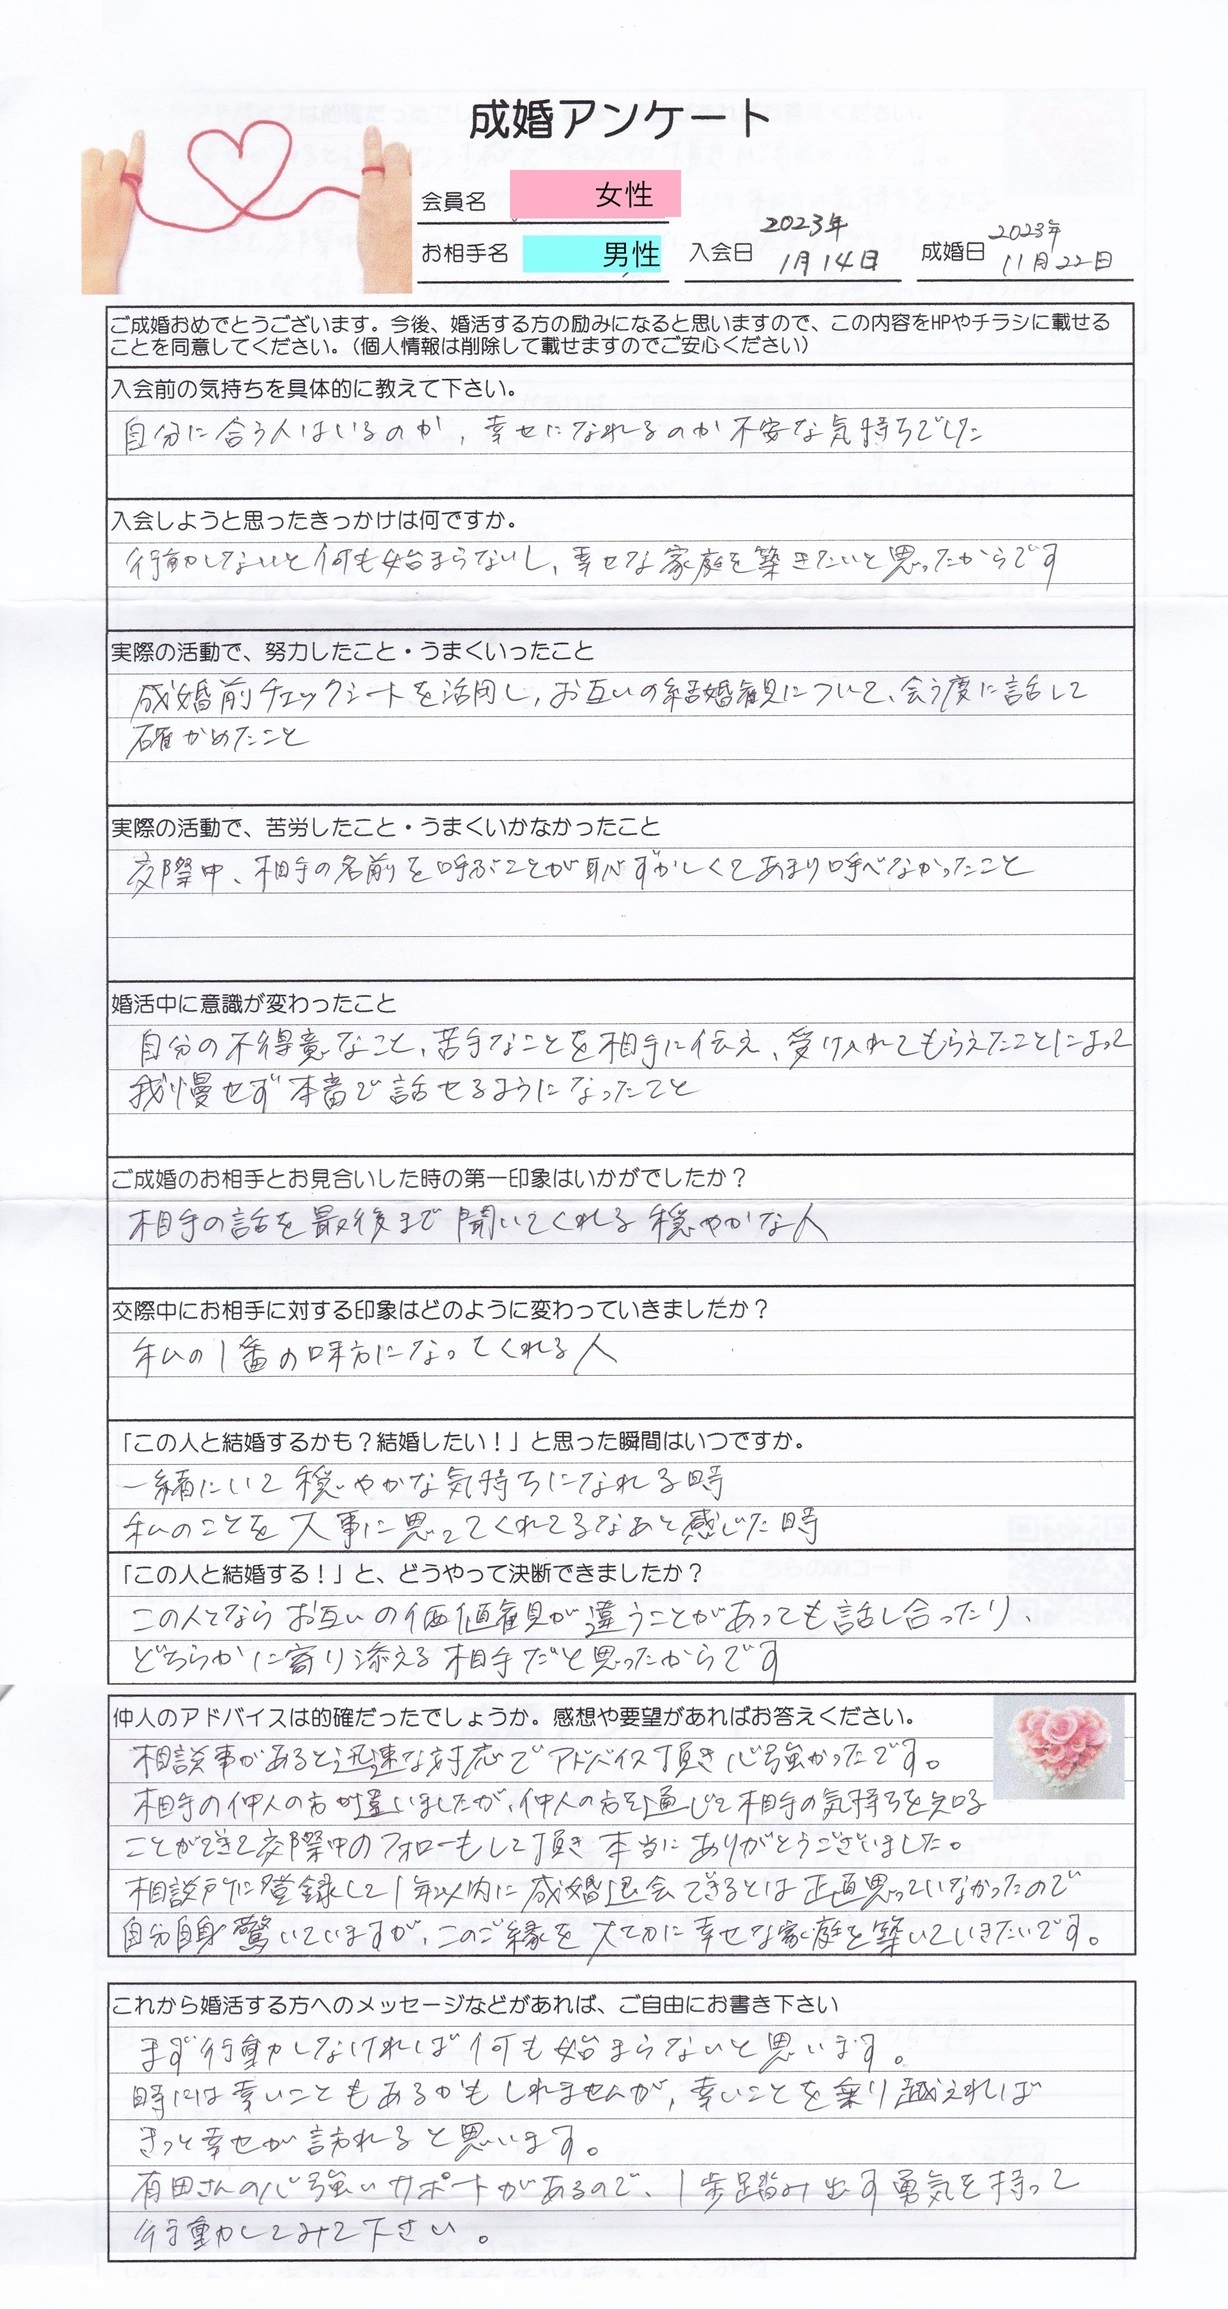 成婚アンケート
会員名 女性
お相手名 男性 入会日 2023年 1月14日 成婚日 2023年 11月22日
ご成婚おめでとうございます。今後、婚活する方の励みになると思いますので、この内容をHPやチラシに載せる
ことを同意してください。（個人情報は削除して載せますのでご安心ください）
入会前の気持ちを具体的に教えて下さい。
自分に合う人はいるのか、幸せになれるのか不安な気持ちでした
入会しようと思ったきっかけは何ですか。
行動しないと何も始まらないし、幸せな家庭を築きたいと思ったからです
実際の活動で、努力したこと・うまくいったこと
成婚前チェックシートを活用し、お互いの結婚観について、会う度に話して
確かめたこと
実際の活動で、苦労したこと・うまくいかなかったこと
交際中、相手の名前を呼ぶことが恥ずかしくてあまり呼べなかったこと
婚活中に意識が変わったこと
自分の不得意なこと、苦手なことを相手に伝え、受け入れてもらえたことによって
我慢せず本音で話せるようになったこと
ご成婚のお相手とお見合いした時の第一印象はいかがでしたか？
相手の話を最後まで聞いてくれる穏やかな人
交際中にお相手に対する印象はどのように変わっていきましたか？
私の1番の味方になってくれる人
「この人と結婚するかも？結婚したい！」と思った瞬間はいつですか。
一緒にいて穏やかな気持ちになれる時
私のことを大事に思ってくれてるなあと感じた時
「この人と結婚する！」と、どうやって決断できましたか？
この人とならお互いの価値観が違うことがあっても話し合ったり、
どちらかに寄り添える相手だと思ったからです
仲人のアドバイスは的確だったでしょうか。感想や要望があればお答えください。
相談事があると迅速な対応でアドバイス頂き心強かったです。
相手の仲人の方が違いましたが、仲人の方を通じて相手の気持ちを知る
ことができて交際中のフォローもして頂き本当にありがとうございました。
相談所に登録して1年以内に成婚退会できるとは正直思っていなかったので
自分自身驚いていますが、このご縁を大切に幸せな家庭を築いていきたいです。
これから婚活する方へのメッセージなどがあれば、ご自由にお書き下さい
まず行動しなければ何も始まらないと思います。
時には辛いこともあるかもしれませんが、辛いことを乗り越えれば
きっと幸せが訪れると思います。
有田さんの心強いサポートがあるので、1歩踏み出す勇気を持って
行動してみて下さい。